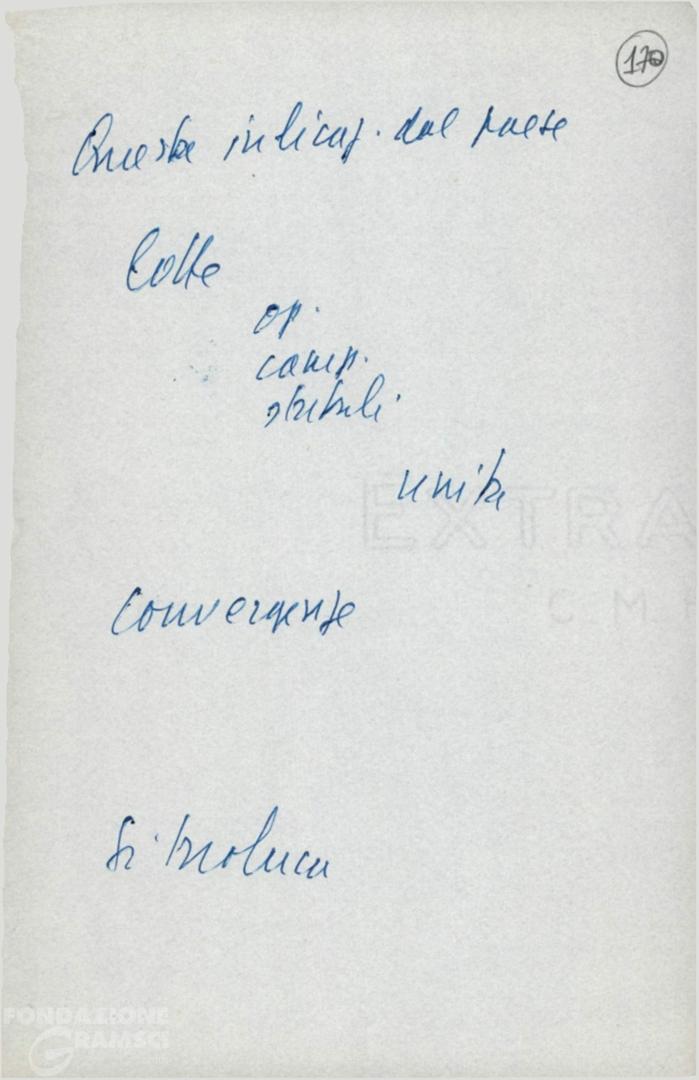 170
Questa indicaz. dal paese
Lotte
op.
camp.
unità
EXTRA
C.M.
Convergenze
Si
FONDAZIONE
GRAMSCI